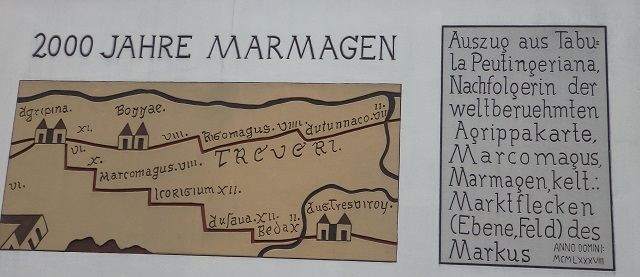 2000 JAHRE MARMAGEN
Agripina.
Bonnae.
XI.
VIII.
Rigomagus. VIIII.
Autunnaco. VIIII
II.
VI.
X.
Marcomagus. VIII.
TREVERI.
VI.
Icorigium XII.
Ausava. XII.
II.
Bedax
Aug. Tresviroy.
Auszug aus Tabu-
la Peutingeriana,
Nachfolgerin der
weltberuehmten
Agrippakarte,
Marcomagus,
Marmagen, kelt.:
Marktflecken
(Ebene, Feld) des
Markus
ANNO DOMINI:
MCMLXXXVIII